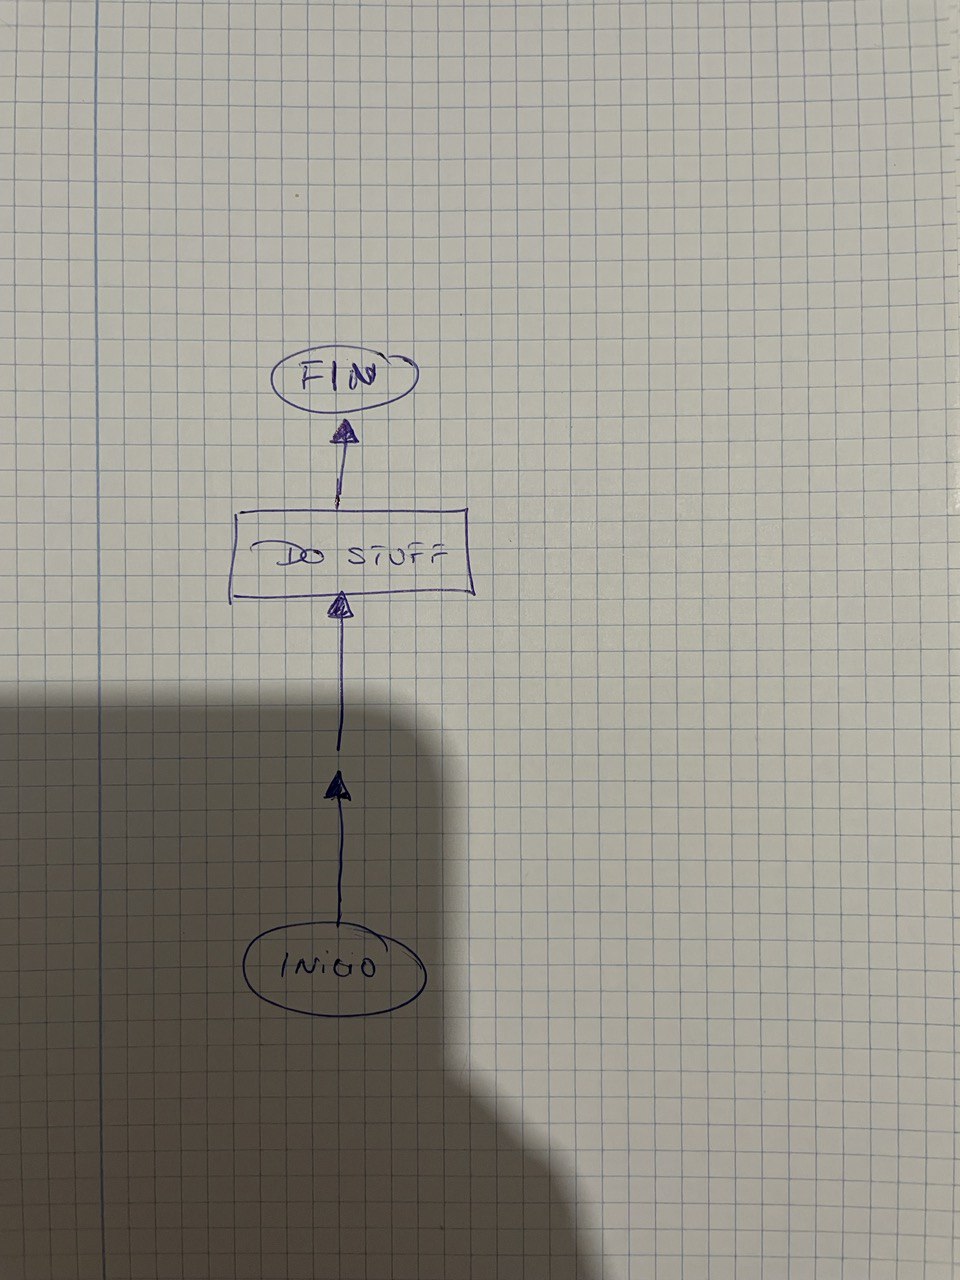 FIN
DO STUFF
INICIO